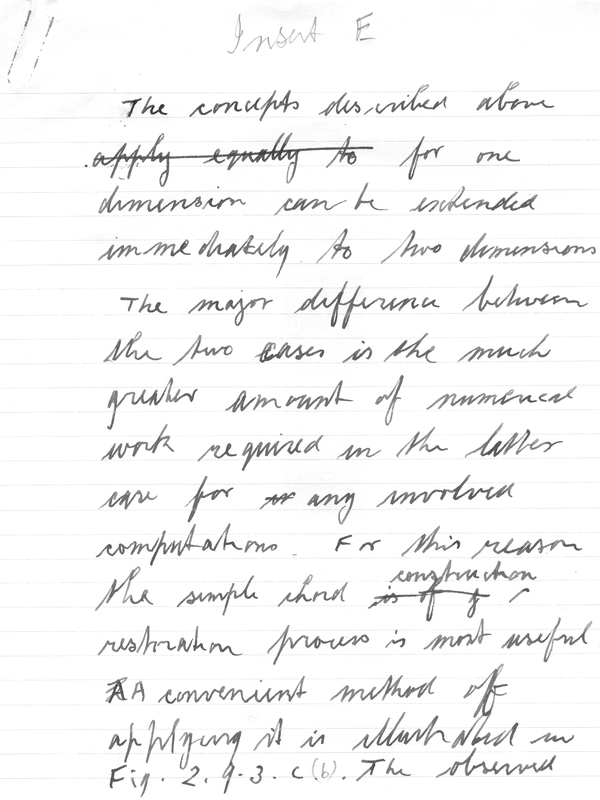 Insert E
The concepts described above
apply equally to for one
dimension can be extended
immediately to two dimensions
The major difference between
the two cases is the much
greater amount of numerical
work required in the latter
case for any involved
computations. For this reason
construction
the simple chord is of
restoration process is most useful
A A convenient method of
applying it is illustrated in
Fig. 2.9.3.c(b). The observed